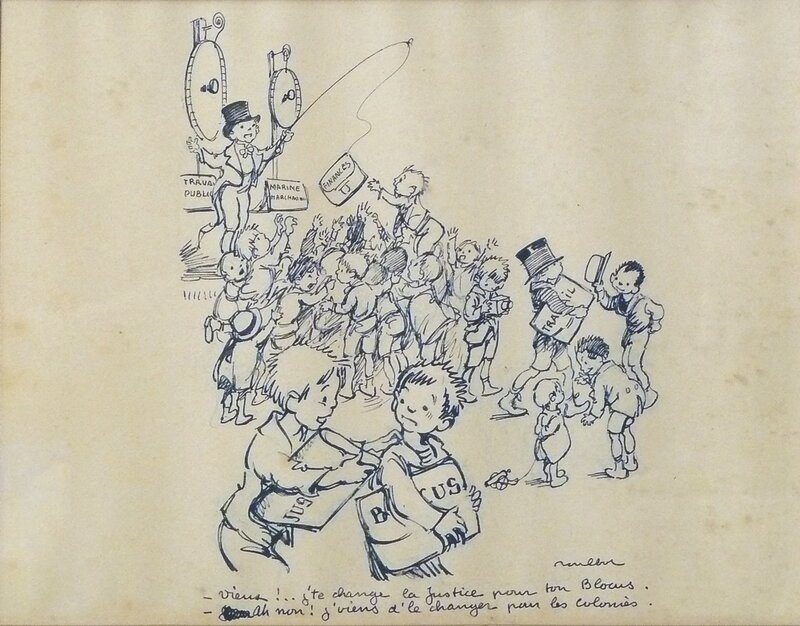 TRAVA
PUBLI
MARINE
MARCHAN
FINANCES
TRA
JUS
B
CUS
Poulbot
- Viens !.. j'te change la Justice pour ton Blocus.
- Ah non ! j'viens d'le changer pour les colonies.